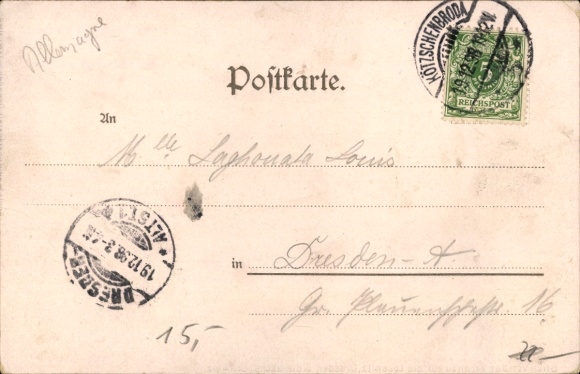 Allemagne
KÖTZSCHENBRODA
19.12.98
5
REICHSPOST
Postkarte.
An
Mlle Laghonata Louis
DRESDEN
ALTST. 1
19.12.98.3-4N
in Dresden-A.
Gr. Plauenschestr. 16
15,-